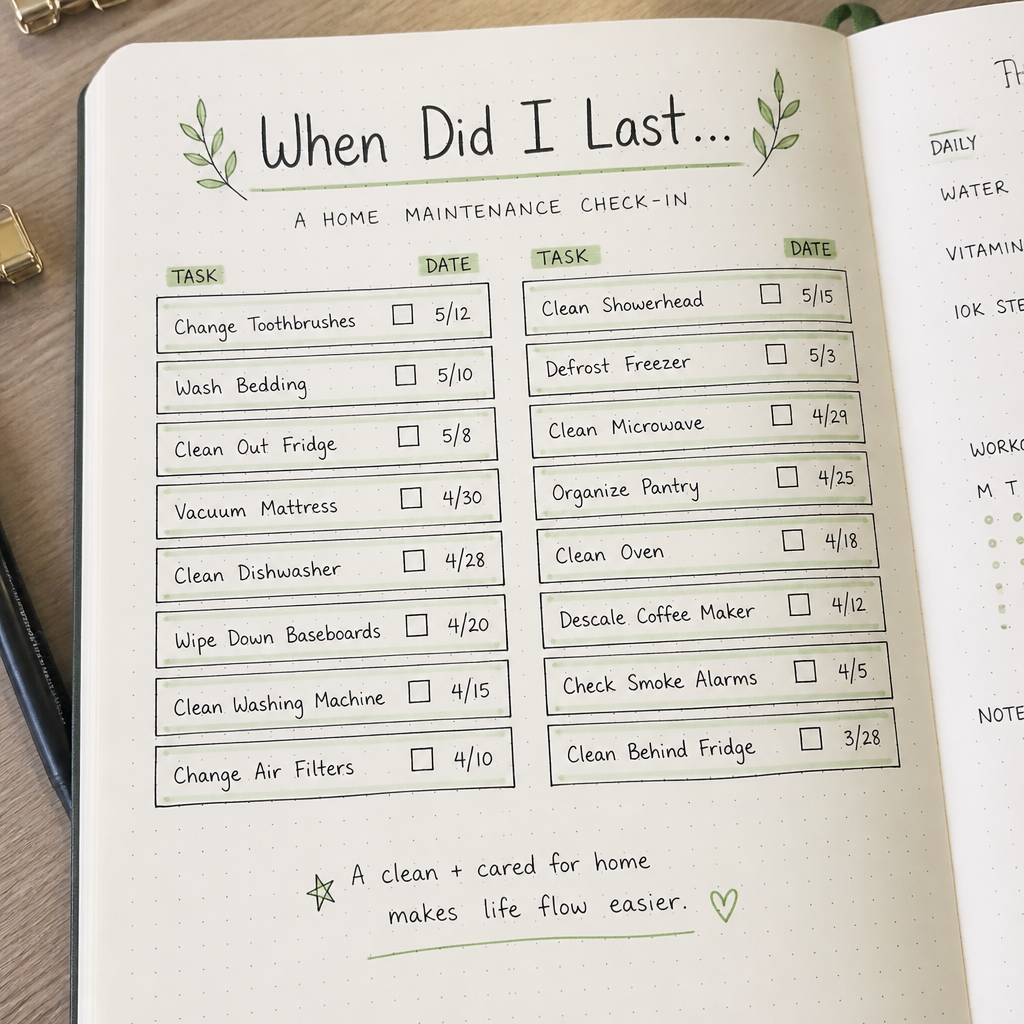 When Did I Last...
A HOME MAINTENANCE CHECK-IN
TASK DATE
Change Toothbrushes 5/12
Wash Bedding 5/10
Clean Out Fridge 5/8
Vacuum Mattress 4/30
Clean Dishwasher 4/28
Wipe Down Baseboards 4/20
Clean Washing Machine 4/15
Change Air Filters 4/10
TASK DATE
Clean Showerhead 5/15
Defrost Freezer 5/3
Clean Microwave 4/29
Organize Pantry 4/25
Clean Oven 4/18
Descale Coffee Maker 4/12
Check Smoke Alarms 4/5
Clean Behind Fridge 3/28
A clean + cared for home
makes life flow easier.
DAILY
WATER
VITAMIN
10K STE
WORKO
M T
NOTE